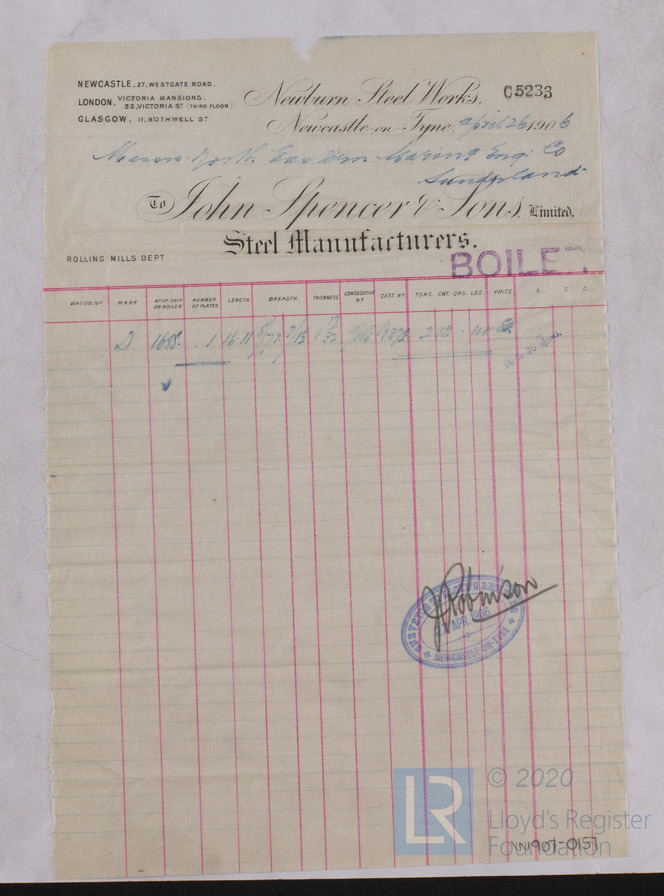 NEWCASTLE, 27, WESTGATE ROAD.
LONDON, VICTORIA MANSIONS. 32, VICTORIA ST (THIRD FLOOR)
GLASGOW, 11, BOTHWELL ST
Newburn Steel Works, C5233
Newcastle-on-Tyne, April 26 1906
Messrs North Eastern Marine Eng. Co
Sunderland
To John Spencer & Sons, Limited.
Steel Manufacturers.
ROLLING MILLS DEPT
BOILER
WAGON Nº MARK Nº OF SHIP OR BOILER NUMBER OF PLATES. LENGTH. BREADTH. THICKNESS. CONSECUTIVE Nº CAST Nº TONS. CWT. QRS. LBS. PRICE. £. S. D.
D 1688. 1 16·11
J Robinson
APR. 1906
NEWCASTLE-ON-TYNE
LR © 2020
Lloyd's Register
Foundation
NN907-0157